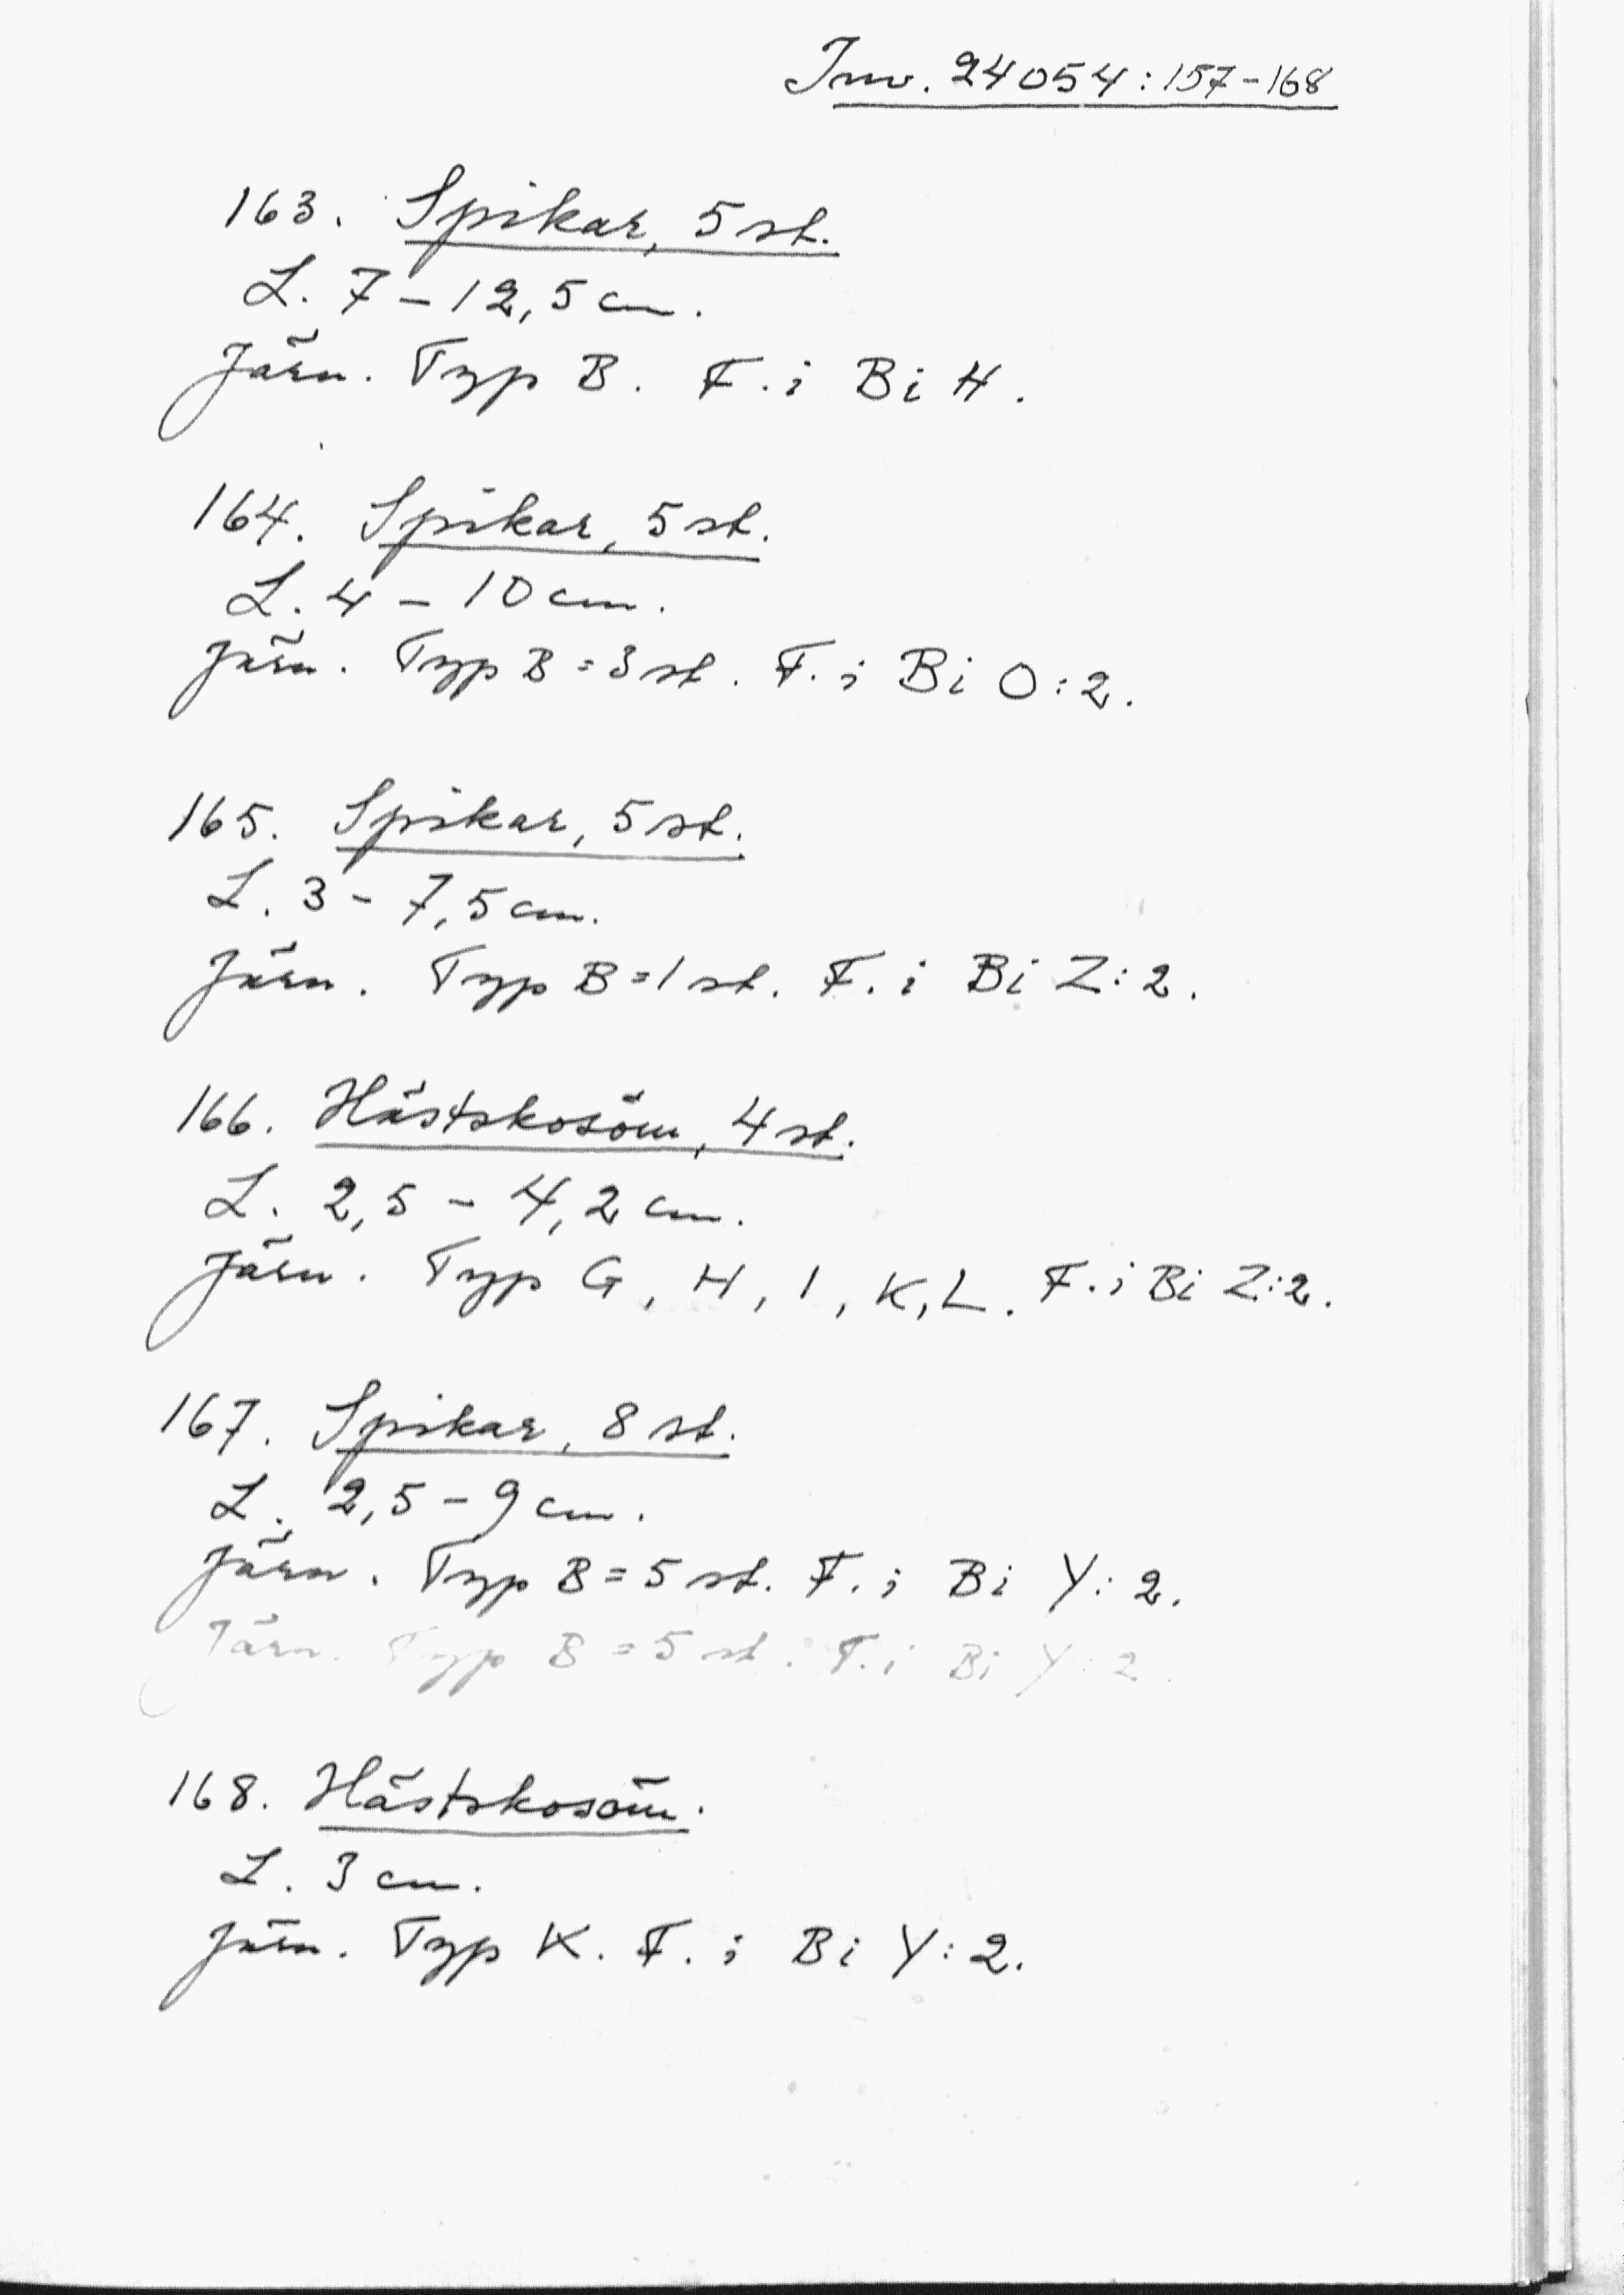 Inv. 24054:157-168
163. Spikar, 5 st.
L. 7 - 12,5 cm.
Järn. Typ B. F. i Bi H.
164. Spikar, 5 st.
L. 4 - 10 cm.
Järn. Typ B = 3 st. F. i Bi O:2.
165. Spikar, 5 st.
L. 3 - 7,5 cm.
Järn. Typ B = 1 st. F. i Bi Z:2.
166. Hästskosöm, 4 st.
L. 2,5 - 4,2 cm.
Järn. Typ G, H, I, K, L. F. i Bi Z:2.
167. Spikar, 8 st.
L. 2,5 - 9 cm.
Järn. Typ B = 5 st. F. i Bi Y:2.
Järn. Typ B = 5 st. F. i Bi Y:2
168. Hästskosöm.
L. 3 cm.
Järn. Typ K. F. i Bi Y:2.